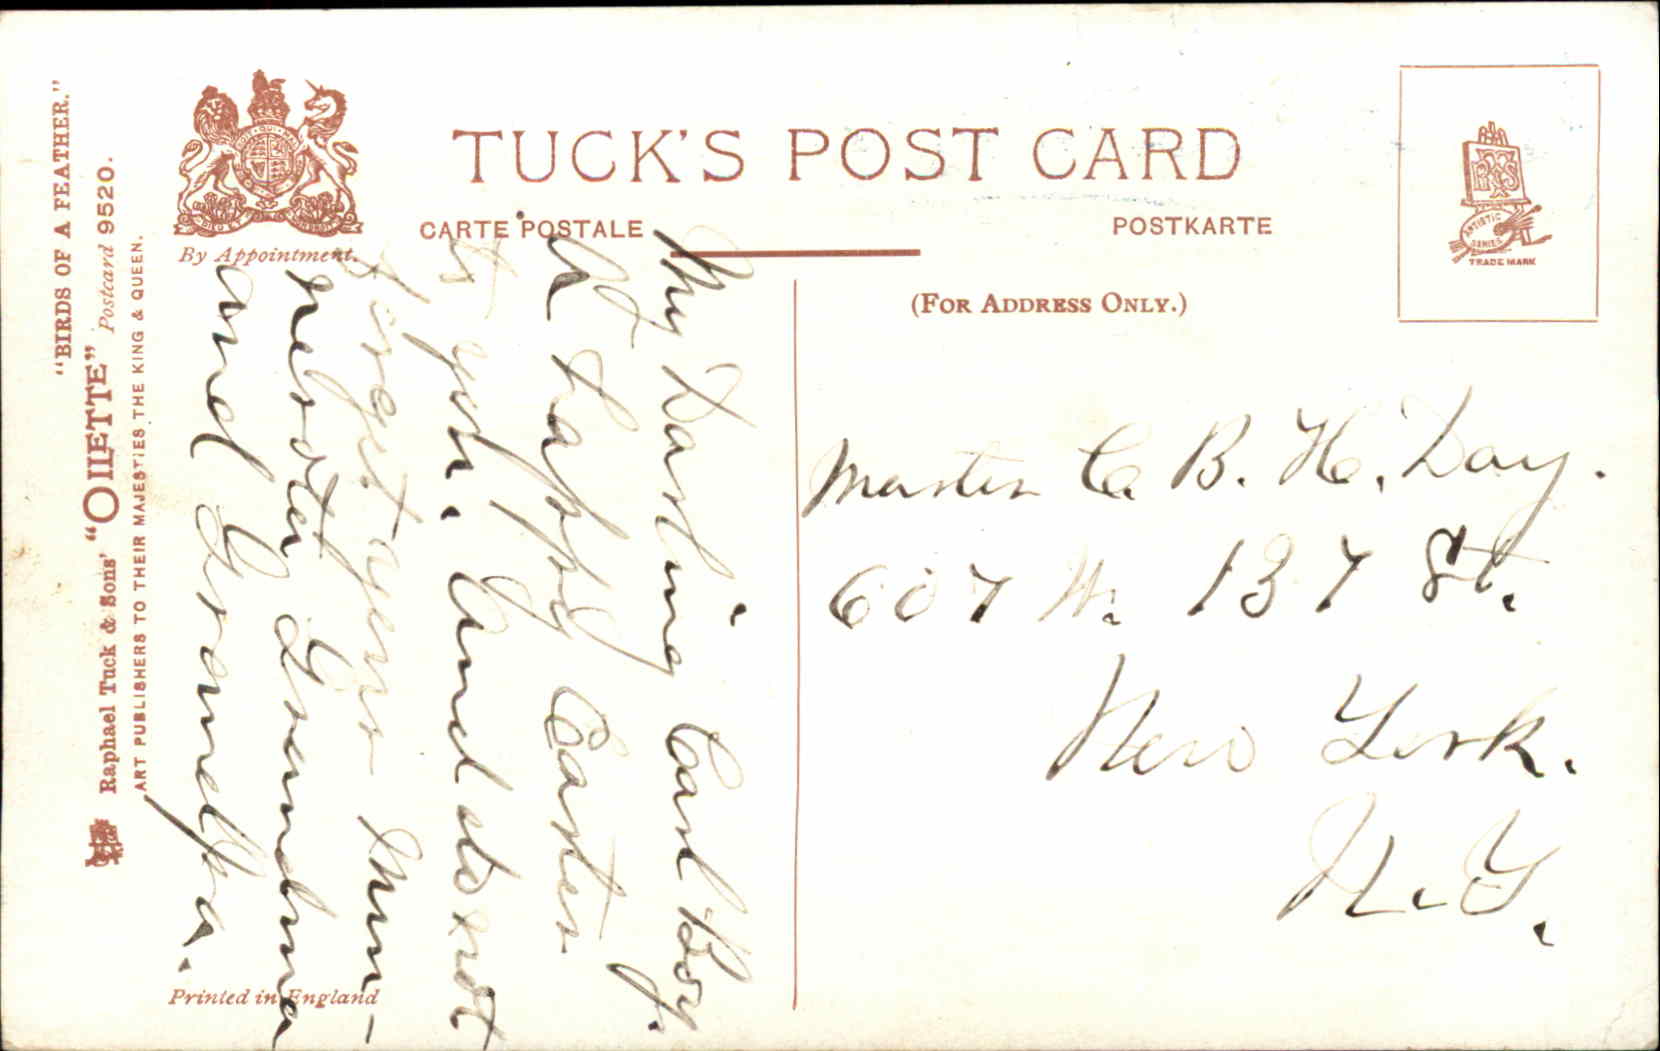 "BIRDS OF A FEATHER."
Raphael Tuck & Sons' "OILETTE" Postcard 9520.
ART PUBLISHERS TO THEIR MAJESTIES THE KING & QUEEN.
By Appointment.
TUCK'S POST CARD
CARTE POSTALE
POSTKARTE
(FOR ADDRESS ONLY.)
RTS
ARTISTIC
SERIES
TRADE MARK
My Darling Carl Boy.
A happy Easter
to you. And do not
forget your Mun-
Grandma
and Grandpa.
Master C. B. H. Day.
607 W. 137 St.
New York.
N.Y.
Printed in England